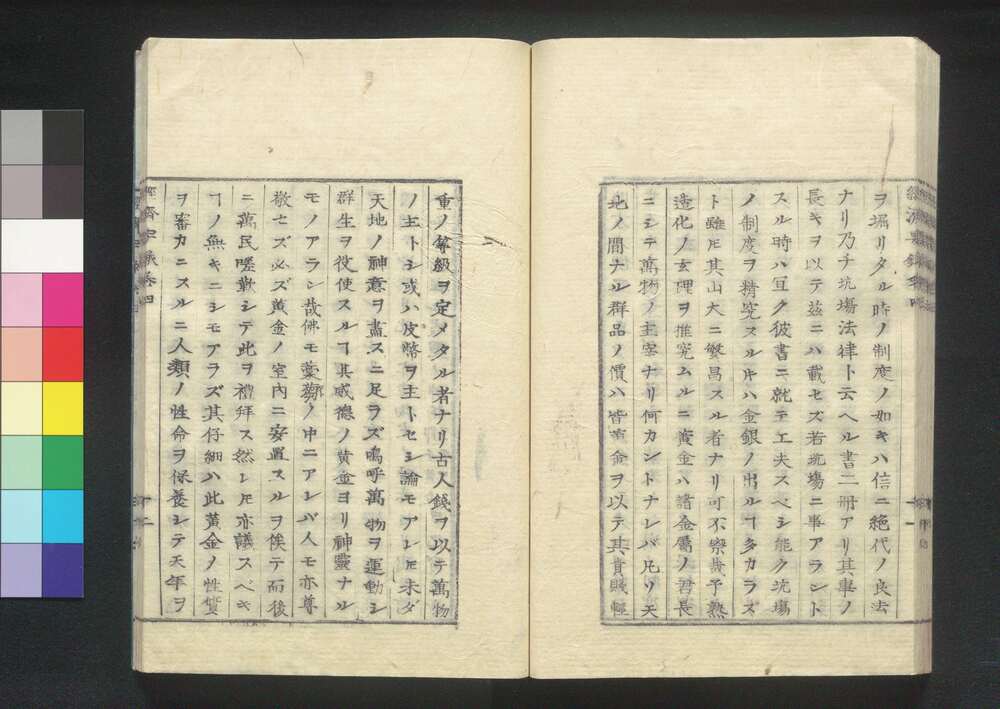 ヲ堀リタル時ノ制度ノ如キハ信ニ絶代ノ良法
ナリ乃チ坑塲法律ト云ヘル書二冊アリ其事ノ
長キヲ以テ茲ニハ載セズ若坑塲ニ事アラント
スル時ハ宜ク彼書ニ就テ工夫スベシ能ク坑塲
ノ制度ヲ精究スル片ハ金銀ノ出ルヿ多カラズ
ト雖𪜈其山大ニ繁昌スル者ナリ可不察哉予熟
造化ノ玄理ヲ推究ムルニ黄金ハ諸金属ノ君長
ニシテ萬物ノ主宰ナリ何カントナレバ凡ソ天
地ノ間ナル群品ノ價ハ皆黄金ヲ以テ其貴賤輕
重ノ等級ヲ定メタル者ナリ古人錢ヲ以テ萬物
ノ主トシ或ハ皮幣ヲ主トセシ論モアレ𪜈未ダ
天地ノ神意ヲ盡スニ足ラズ嗚呼萬物ヲ運動シ
群生ヲ役使スルヿ其威德ノ黄金ヨリ神靈ナル
モノアラン哉佛モ藁蒭ノ中ニアレバ人モ亦尊
敬セズ必ズ黄金ノ室内ニ安置スルヲ俟テ而後
ニ萬民嗟歎シテ此ヲ禮拜ス然レ𪜈亦議スベキ
ヿノ無キニシモアラズ其仔細ハ此黄金ノ性質
ヲ審カニスルニ人類ノ性命ヲ保養シテ天年ヲ